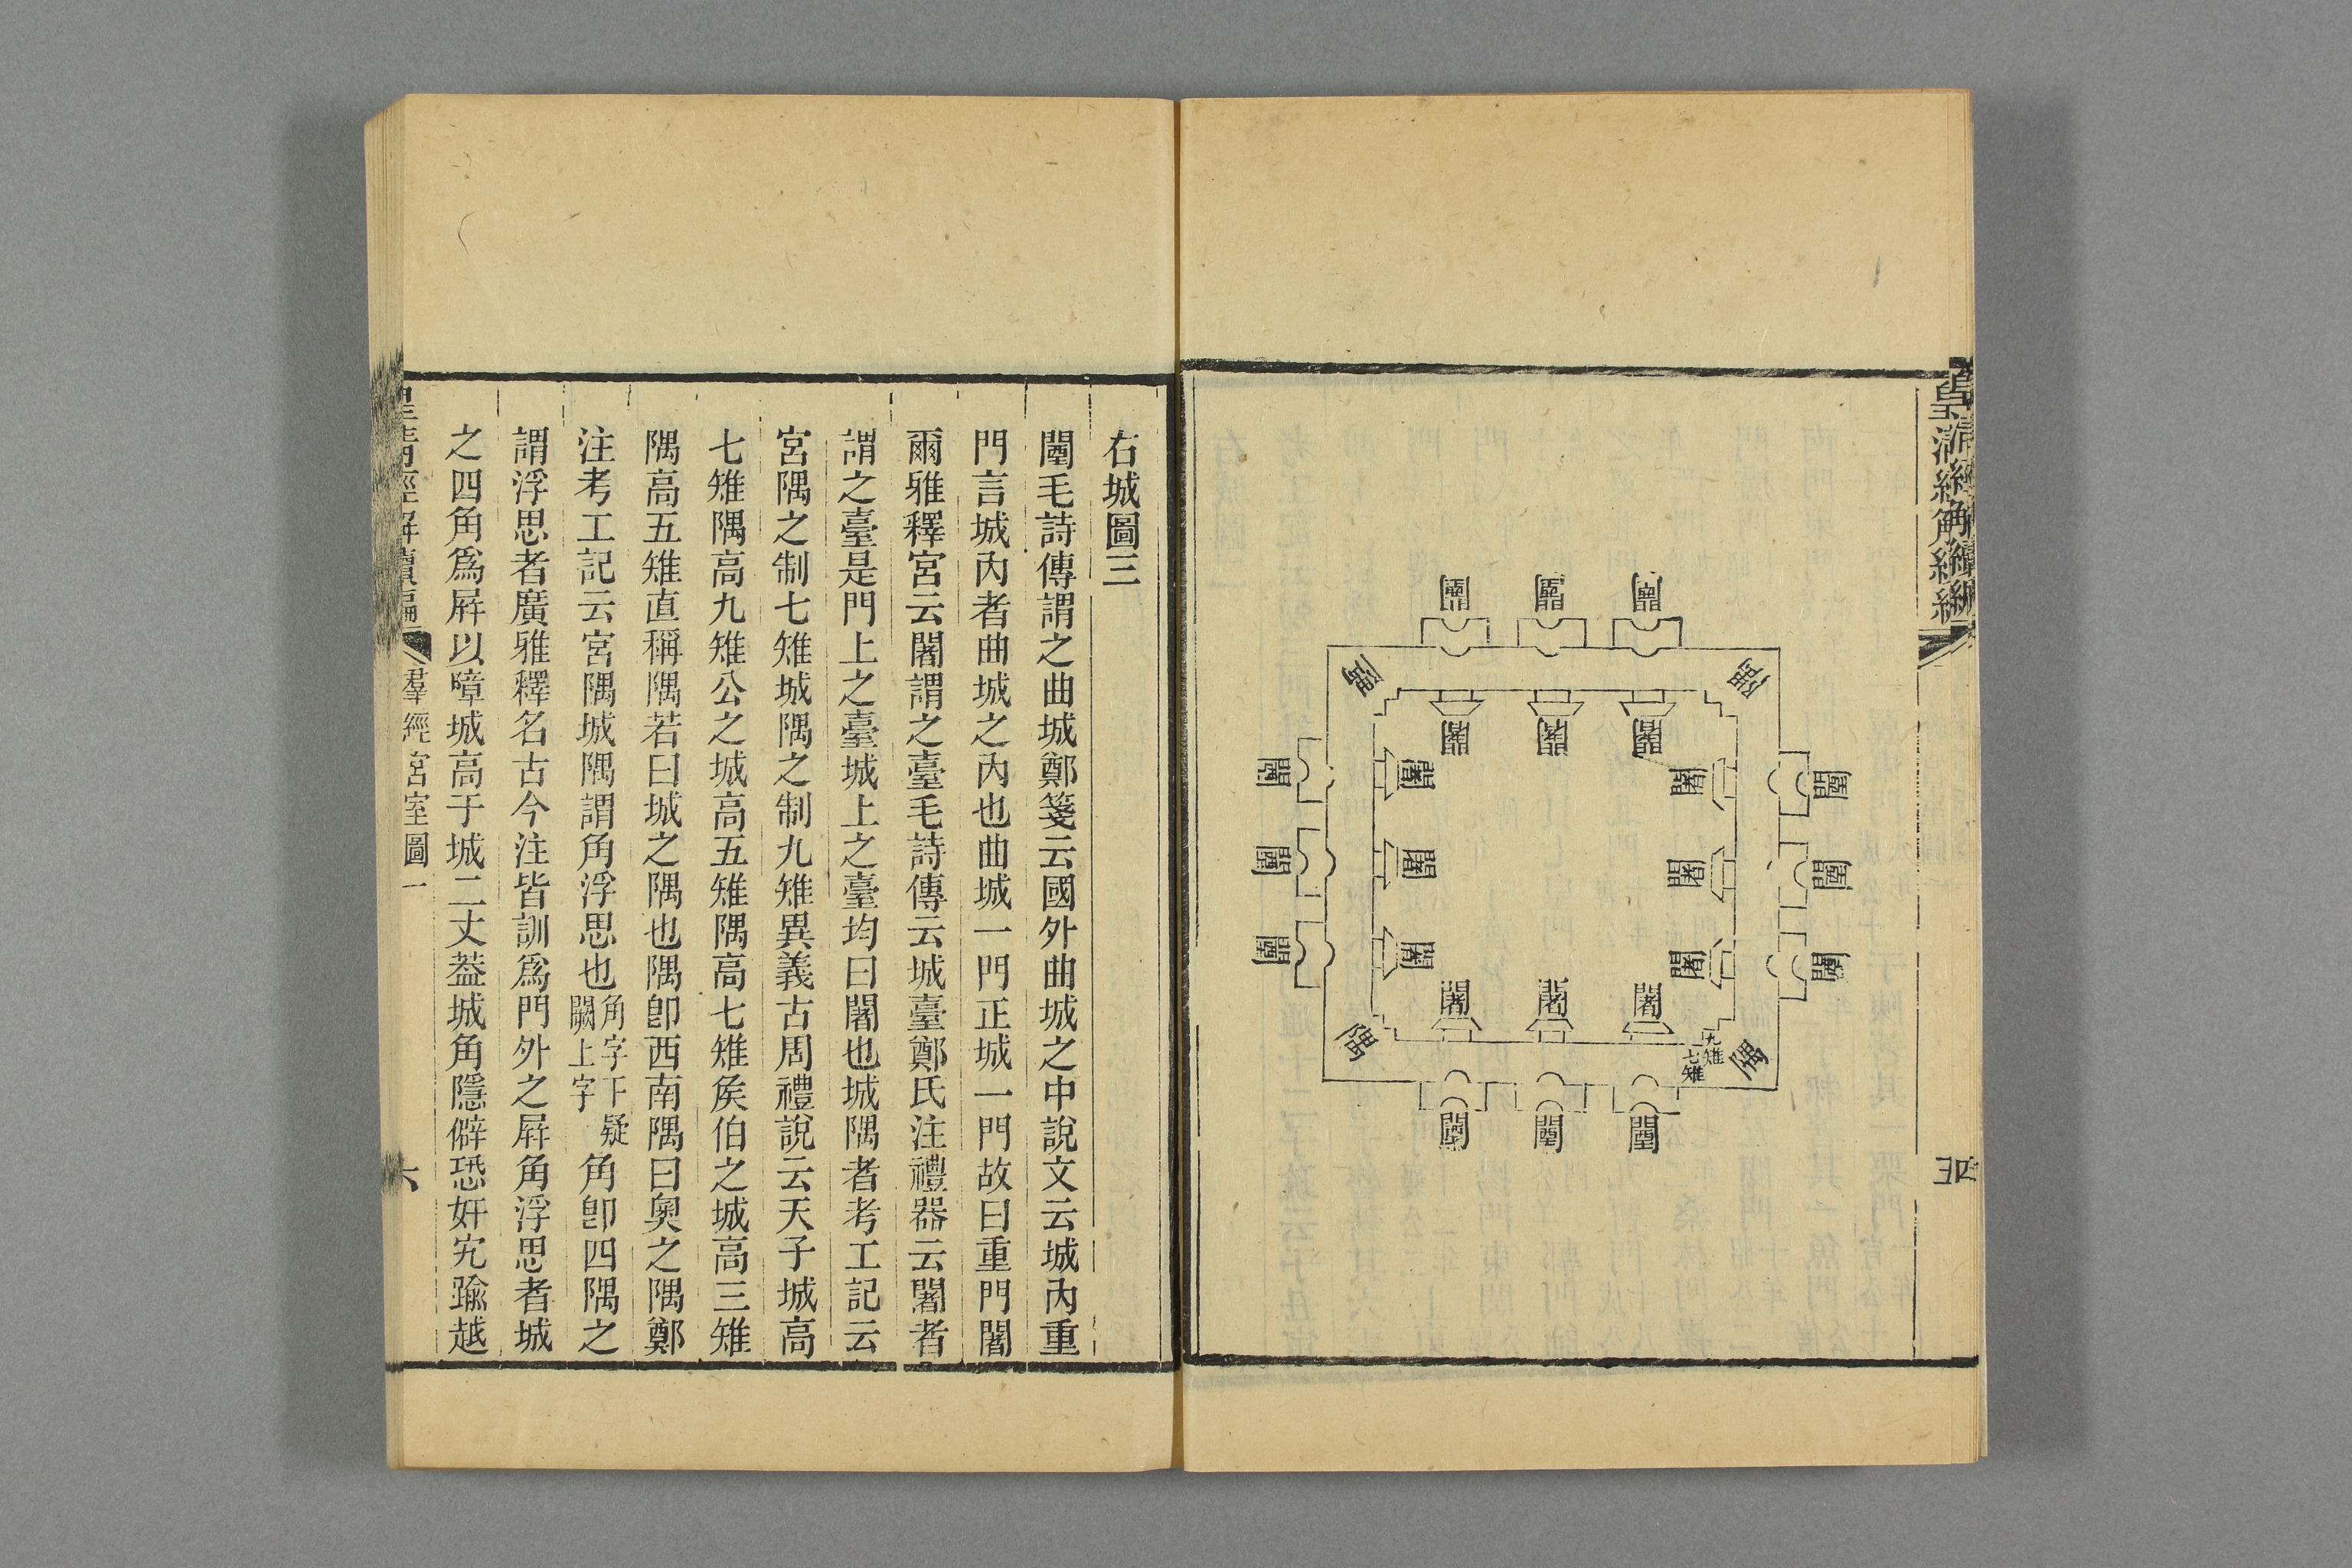 闉
闉
闉
隅
隅
闍
闍
闍
闉
闉
闉
闍
闍
闍
闍
闍
闍
闉
闉
闉
闍
闍
闍
隅
隅
九雉
七雉
闉
闉
闉
右城圖三
闉毛詩傳謂之曲城鄭箋云國外曲城之中說文云城內重
門言城內者曲城之內也曲城一門正城一門故曰重門闍
爾雅釋宮云闍謂之臺毛詩傳云城臺鄭氏注禮器云闍者
謂之臺是門上之臺城上之臺均曰闍也城隅者考工記云
宮隅之制七雉城隅之制九雉異義古周禮說云天子城高
七雉隅高九雉公之城高五雉隅高七雉矦伯之城高三雉
隅高五雉直稱隅若曰城之隅也隅卽西南隅曰奧之隅鄭
注考工記云宮隅城隅謂角浮思也角字下疑闕上字角卽四隅之
謂浮思者廣雅釋名古今注皆訓爲門外之屛角浮思者城
之四角爲屛以障城高于城二丈葢城角隱僻恐奸宄踰越
皇淸經解續編
羣經宮室圖一
六